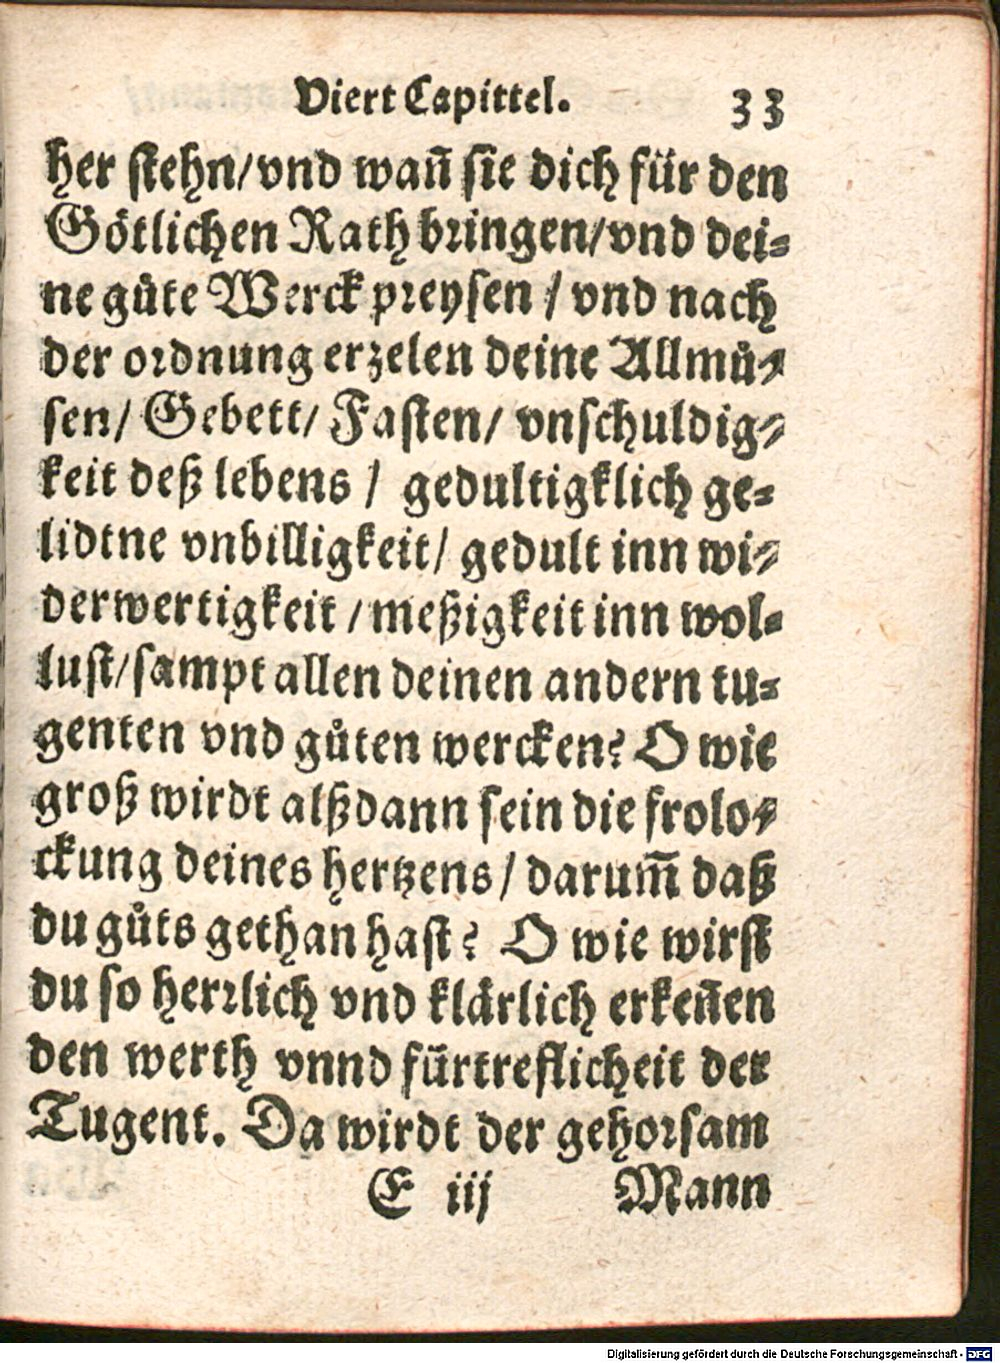 Viert Capittel. 33
her stehn/vnd wañ sie dich für den
Götlichen Rath bringen/vnd dei=
ne gůte Werck preysen / vnd nach
der ordnung erzelen deine Allmů=
sen/ Gebett/ Fasten/ vnschuldig=
keit deß lebens / gedultigklich ge=
lidtne vnbilligkeit/ gedult inn wi=
derwertigkeit / meßigkeit inn wol=
lust/sampt allen deinen andern tu=
genten vnd gůten wercken? O wie
groß wirdt alßdann sein die frolo=
ckung deines hertzens / darum̃ daß
du gůts gethan hast? O wie wirst
du so herrlich vnd klärlich erkeñen
den werth vnnd fürtreflicheit der
Tugent. Da wirdt der gehorsam
E iij Mann
Digitalisierung gefördert durch die Deutsche Forschungsgemeinschaft - DFG